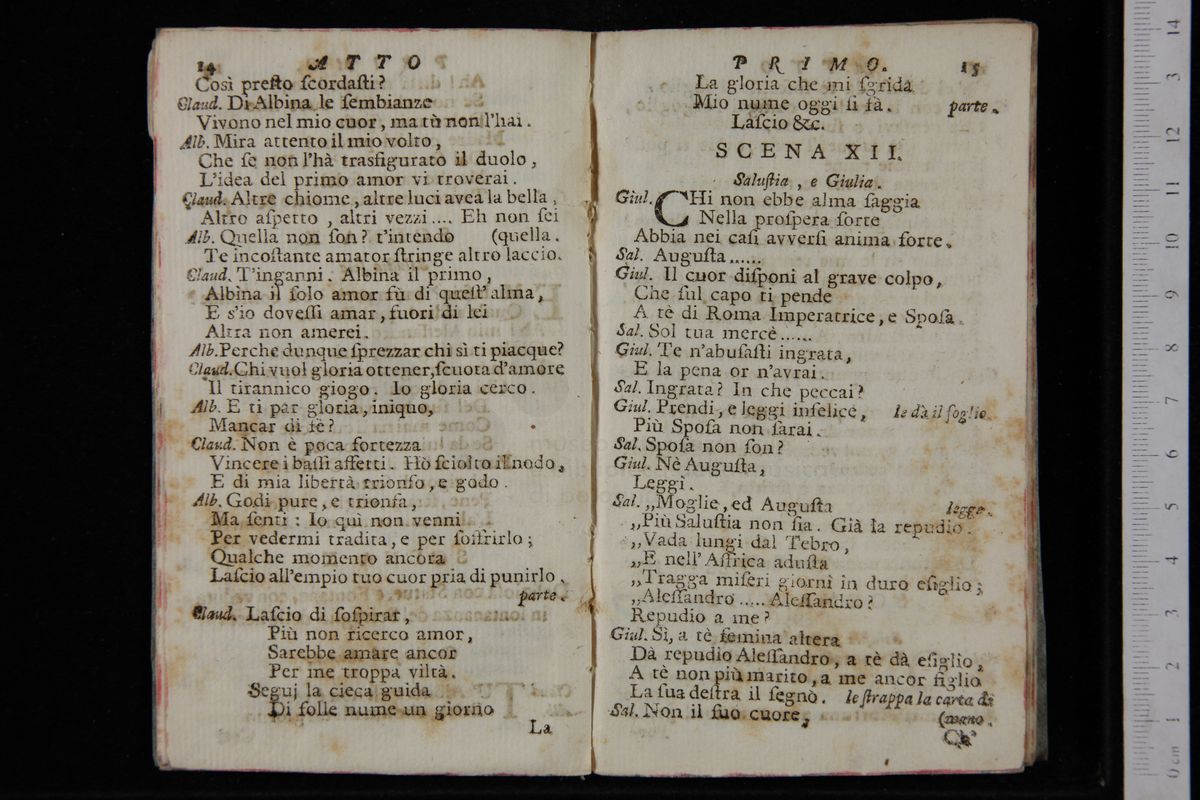 14 ATTO
Così preſto ſcordaſti?
Claud. Di Albina le ſembianze
Vivono nel mio cuor, ma tù non l'hai.
Alb. Mira attento il mio volto,
Che ſe non l'hà trasfigurato il duolo,
L'idea del primo amor vi troverai.
Claud. Altre chiome, altre luci avea la bella,
Altro aſpetto, altri vezzi.... Eh non ſei
Alb. Quella non ſon? t'intendo (quella.
Te incoſtante amator ſtringe altro laccio.
Claud. T'inganni. Albina il primo,
Albina il ſolo amor fù di queſt'alma,
E s'io doveſſi amar, fuori di lei
Altra non amerei.
Alb. Perche dunque ſprezzar chi sì ti piacque?
Claud. Chi vuol gloria ottener, ſcuota d'amore
Il tirannico giogo. Io gloria cerco.
Alb. E ti par gloria, iniquo,
Mancar di fè?
Claud. Non è poca fortezza
Vincere i baſſi affetti. Hò ſciolto il nodo,
E di mia libertà trionfo, e godo.
Alb. Godi pure, e trionfa,
Ma ſenti: Io quì non venni
Per vedermi tradita, e per ſoffrirlo;
Qualche momento ancora
Laſcio all'empio tuo cuor pria di punirlo.
parte.
Claud. Laſcio di ſoſpirar,
Più non ricerco amor,
Sarebbe amare ancor
Per me troppa viltà.
Seguj la cieca guida
Di folle nume un giorno
La
PRIMO. 15
La gloria che mi ſgrida
Mio nume oggi ſi fà. parte.
Laſcio &c.
SCENA XII.
Saluſtia, e Giulia.
Giul. CHi non ebbe alma ſaggia
Nella proſpera ſorte
Abbia nei caſi avverſi anima forte.
Sal. Auguſta......
Giul. Il cuor diſponi al grave colpo,
Che ſul capo ti pende
A tè di Roma Imperatrice, e Spoſa.
Sal. Sol tua mercè......
Giul. Te n'abuſaſti ingrata,
E la pena or n'avrai.
Sal. Ingrata? In che peccai?
Giul. Prendi, e leggi infelice, le dà il foglio
Più Spoſa non ſarai.
Sal. Spoſa non ſon?
Giul. Nè Auguſta,
Leggi.
Sal. ,,Moglie, ed Auguſta legge.
,,Più Saluſtia non ſia. Già la repudio.
,,Vada lungi dal Tebro,
,,E nell'Affrica aduſta
,,Tragga miſeri giorni in duro eſiglio;
,,Aleſſandro..... Aleſſandro?
Repudio a me?
Giul. Sì, a tè femina altera
Dà repudio Aleſſandro, a tè dà eſiglio,
A tè non più marito, a me ancor figlio
La ſua deſtra il ſegnò. le ſtrappa la carta di
Sal. Non il ſuo cuore, (mano.